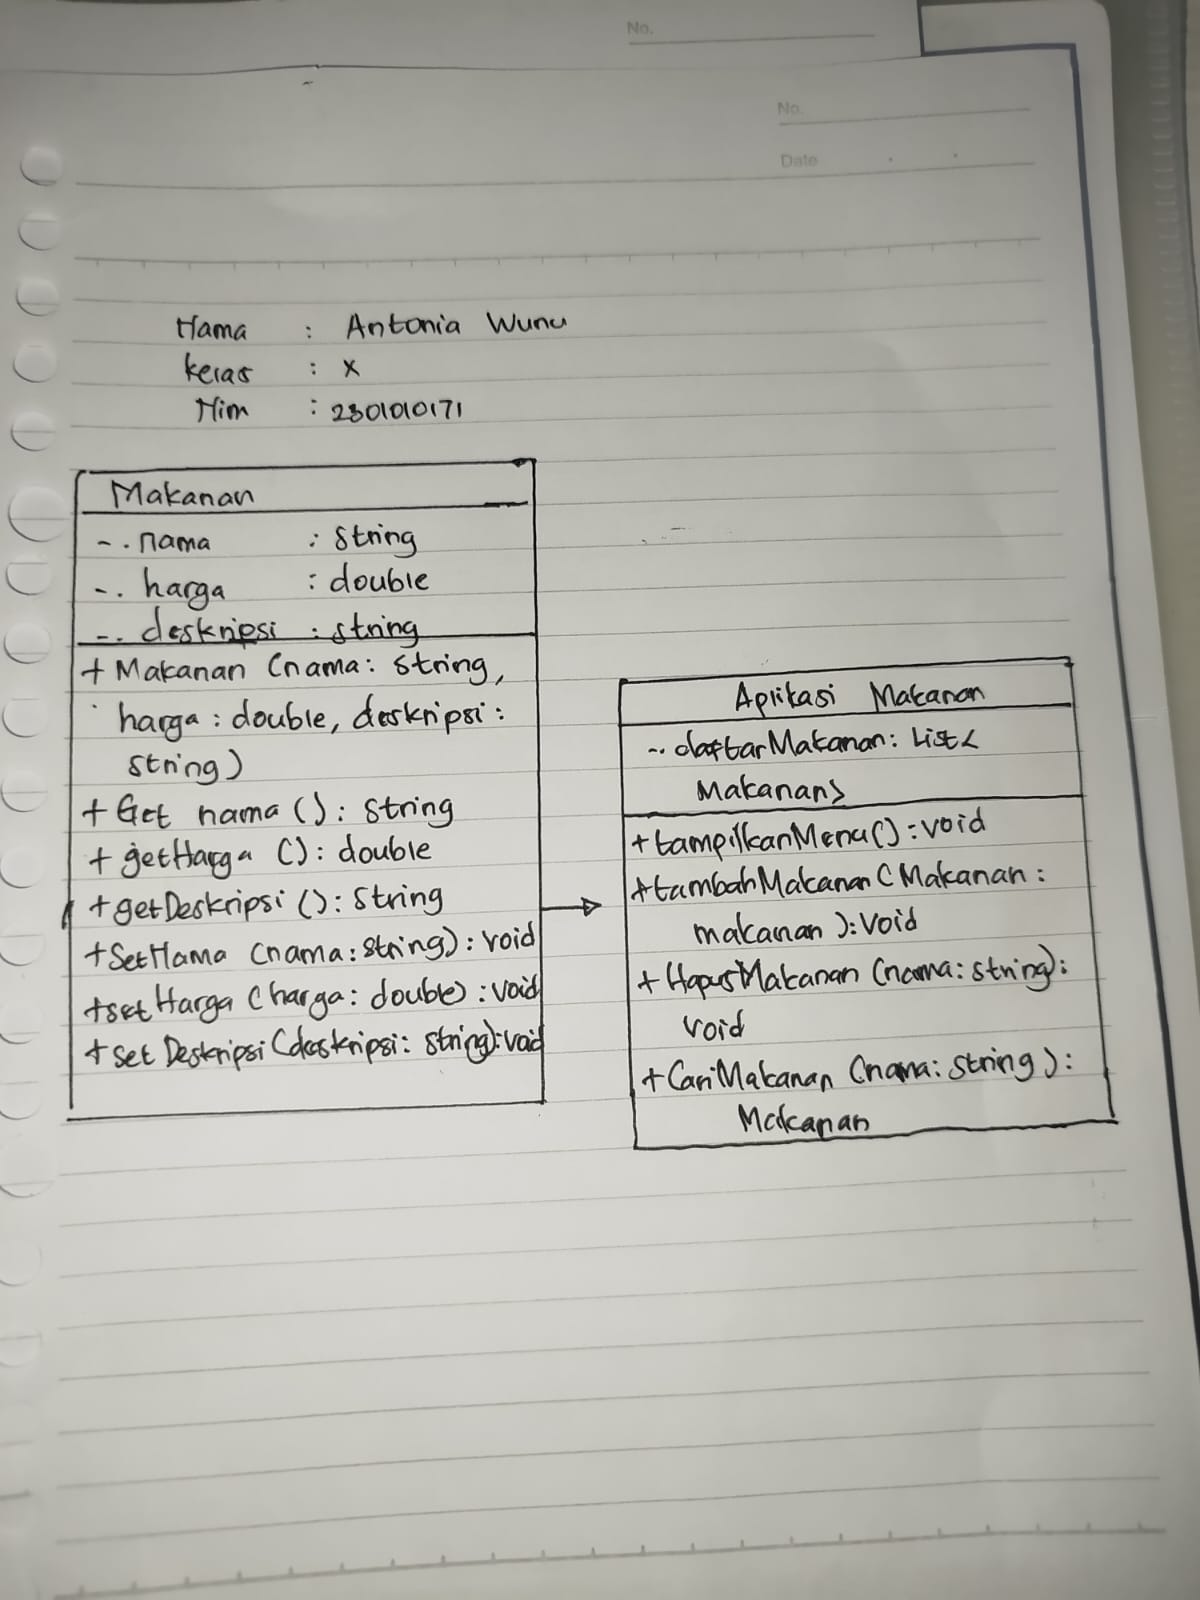 No.
No.
Date
Nama : Antonia Wunu
Kelas : X
Nim : 2301010171
Makanan
- . nama : String
- . harga : double
- . deskripsi : string
+ Makanan (nama : string,
harga : double, deskripsi :
string)
+ Get nama () : string
+ getHarga () : double
+ getDeskripsi () : String
+ SetNama (nama : string) : void
+ set Harga (harga : double) : void
+ set Deskripsi (deskripsi : string) : void
Aplikasi Makanan
- . daftarMakanan : List <
Makanan>
+ tampilkanMenu () : void
+ tambahMakanan (Makanan :
makanan ) : void
+ HapusMakanan (nama : string) :
void
+ CariMakanan (nama : string ) :
Makanan